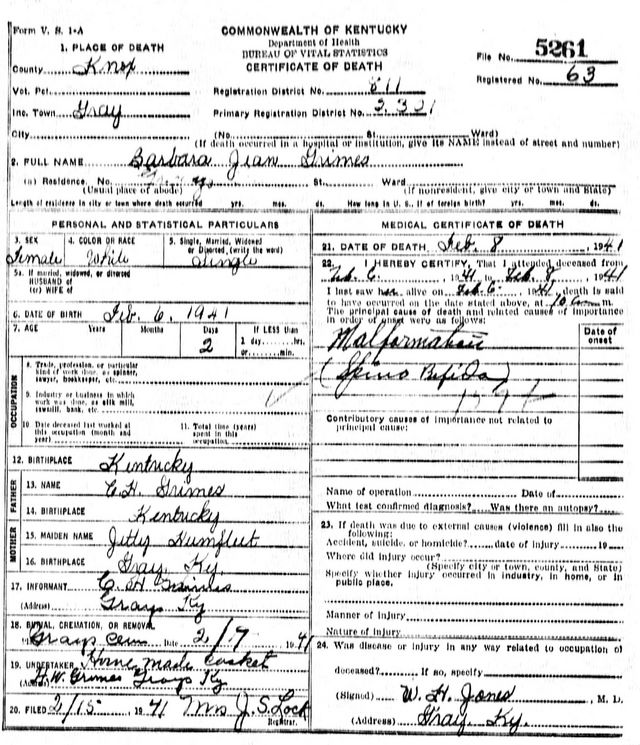 Form V. S. 1-A
COMMONWEALTH OF KENTUCKY
Department of Health
BUREAU OF VITAL STATISTICS
CERTIFICATE OF DEATH
File No. 5261
Registered No. 63
1. PLACE OF DEATH
County Knox
Vot. Pct.
Inc. Town Gray
City
Registration District No. 811
Primary Registration District No. 2321
(No. St. Ward)
(If death occurred in a hospital or institution, give its NAME instead of street and number)
2. FULL NAME Barbara Jean Grimes
(a) Residence. No. St. Ward
(Usual place of abode) (If nonresident, give city or town and State)
Length of residence in city or town where death occurred yrs. mos. ds. How long in U. S., if of foreign birth? yrs. mos. ds.
PERSONAL AND STATISTICAL PARTICULARS
3. SEX 4. COLOR OR RACE 5. Single, Married, Widowed
or Divorced, (write the word)
Female White Single
5a. If married, widowed, or divorced
HUSBAND of
(or) WIFE of
6. DATE OF BIRTH Feb. 6, 1941
7. AGE Years Months Days If LESS than
2 1 day, hrs.
or min.
OCCUPATION
8. Trade, profession, or particular
kind of work done, as spinner,
sawyer, bookkeeper, etc.
9. Industry or business in which
work was done, as silk mill,
sawmill, bank, etc.
10. Date deceased last worked at
this occupation (month and
year)
11. Total time (years)
spent in this
occupation
12. BIRTHPLACE Kentucky
FATHER
13. NAME C. H. Grimes
14. BIRTHPLACE Kentucky
MOTHER
15. MAIDEN NAME Jetty
16. BIRTHPLACE Gray, Ky.
17. INFORMANT C. H. Grimes
(Address) Grays Ky
18. BURIAL, CREMATION, OR REMOVAL
Grays Cem Date 2/9 1941
19. UNDERTAKER Home made casket
(Address) H. W. Grimes Grays Ky
20. FILED 2/15 1941 Mrs J. S. Lock
Registrar.
MEDICAL CERTIFICATE OF DEATH
21. DATE OF DEATH Feb. 8, 1941
22. I HEREBY CERTIFY, That I attended deceased from
Feb. 6, 1941 to Feb. 8, 1941
I last saw her alive on Feb. 6, 1941, death is said
to have occurred on the date stated above, at 10 m.
The principal cause of death and related causes of importance
in order of onset were as follows:
Date of
onset
Malformation
(Spino Bifida)
Contributory causes of importance not related to
principal cause:
Name of operation Date of
What test confirmed diagnosis? Was there an autopsy?
23. If death was due to external causes (violence) fill in also the
following:
Accident, suicide, or homicide? date of injury 19
Where did injury occur?
(Specify city or town, county, and State)
Specify whether injury occurred in industry, in home, or in
public place.
Manner of injury
Nature of injury
24. Was disease or injury in any way related to occupation of
deceased? If so, specify
(Signed) W. H. Jones, M. D.
(Address) Gray, Ky.